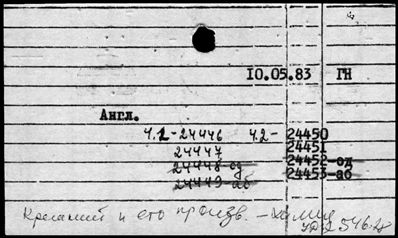 10.05.83 ГН
Англ.
4.2-24446 4.2-24450
24447 24451
24448-од 24452-од
24449-аб 24453-аб
Кремний и его произв. - химия
546.2